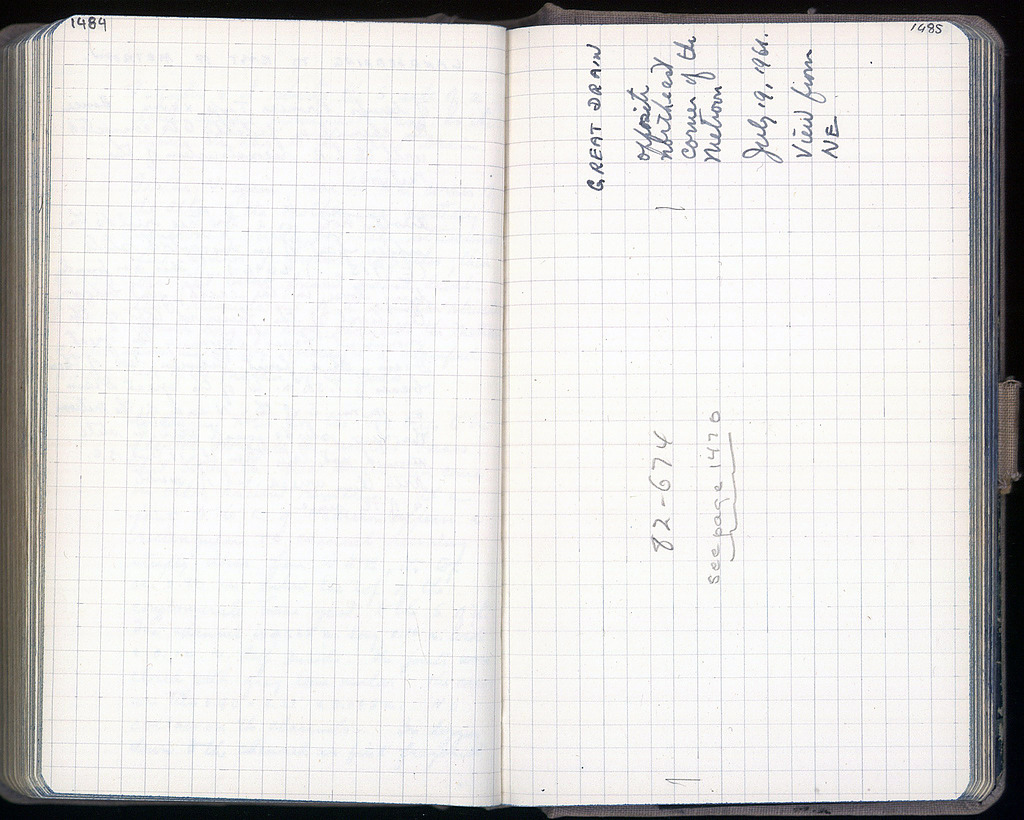 1484
1485
GREAT DRAIN
opposite
northeast
corner of the
Metroon
July 19, 1961.
View from
NE
82-674
see page 1470